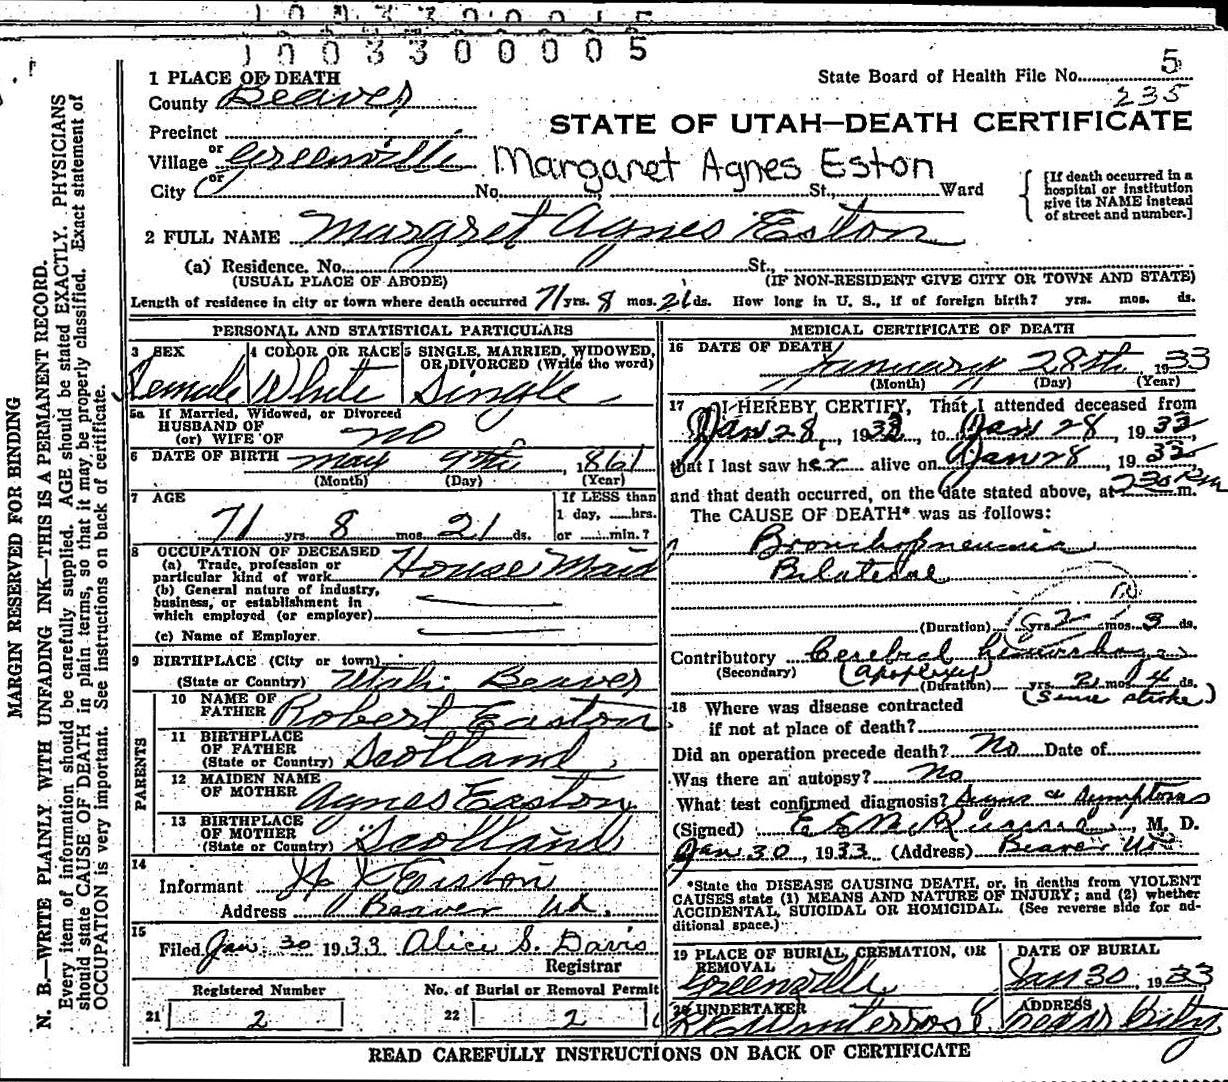 1 0 0 3 3 0 0 0 0 5
1 PLACE OF DEATH
County Beaver
State Board of Health File No. 5
235
Precinct
STATE OF UTAH—DEATH CERTIFICATE
or
Village Greenville
Margaret Agnes Eston
or
City No. St., Ward
[If death occurred in a
hospital or institution
give its NAME instead
of street and number.]
2 FULL NAME Margret Agnes Eston
(a) Residence. No. St.,
(USUAL PLACE OF ABODE) (IF NON-RESIDENT GIVE CITY OR TOWN AND STATE)
Length of residence in city or town where death occurred 71 yrs. 8 mos. 21 ds. How long in U. S., if of foreign birth? yrs. mos. ds.
PERSONAL AND STATISTICAL PARTICULARS
3 SEX 4 COLOR OR RACE 5 SINGLE, MARRIED, WIDOWED,
OR DIVORCED (Write the word)
Female White Single
5a If Married, Widowed, or Divorced
HUSBAND OF
(or) WIFE OF no
6 DATE OF BIRTH May 7th, 1861
(Month) (Day) (Year)
7 AGE
71 yrs. 8 mos. 21 ds.
If LESS than
1 day, hrs.
or min.?
8 OCCUPATION OF DECEASED
(a) Trade, profession or
particular kind of work House Maid
(b) General nature of industry,
business, or establishment in
which employed (or employer)
(c) Name of Employer
9 BIRTHPLACE (City or town)
(State or Country) Utah. Beaver
PARENTS
10 NAME OF
FATHER Robert Easton
11 BIRTHPLACE
OF FATHER
(State or Country) Scotland
12 MAIDEN NAME
OF MOTHER Agnes Easton
13 BIRTHPLACE
OF MOTHER
(State or Country) Scotland
14
Informant Eston
Address Beaver Ut.
15
Filed Jan. 30 1933 Alice S. Davis
Registrar
Registered Number No. of Burial or Removal Permit
21 2 22 2
MEDICAL CERTIFICATE OF DEATH
16 DATE OF DEATH
January 28th 1933
(Month) (Day) (Year)
17 I HEREBY CERTIFY, That I attended deceased from
Jan 28, 1933, to Jan 28, 1933
that I last saw her alive on Jan 28, 1933
and that death occurred, on the date stated above, at 230 P m.
The CAUSE OF DEATH* was as follows:
Bronchopneumonia
Bilateral
(Duration) yrs. mos. 3 ds.
Contributory Cerebral hemorrhage
(Secondary) (apoplexy)
(Duration) yrs. 2 mos. 14 ds.
(Since stroke)
18 Where was disease contracted
if not at place of death?
Did an operation precede death? No Date of
Was there an autopsy? No
What test confirmed diagnosis? Signs & Symptoms
(Signed), M. D.
Jan 30, 1933 (Address) Beaver Ut
*State the DISEASE CAUSING DEATH, or, in deaths from VIOLENT
CAUSES state (1) MEANS AND NATURE OF INJURY; and (2) whether
ACCIDENTAL, SUICIDAL OR HOMICIDAL. (See reverse side for ad-
ditional space.)
19 PLACE OF BURIAL, CREMATION, OR
REMOVAL
Greenville
DATE OF BURIAL
Jan 30, 1933
20 UNDERTAKER
ADDRESS
Beaver City
READ CAREFULLY INSTRUCTIONS ON BACK OF CERTIFICATE
MARGIN RESERVED FOR BINDING
N. B.—WRITE PLAINLY WITH UNFADING INK—THIS IS A PERMANENT RECORD.
Every item of information should be carefully supplied. AGE should be stated EXACTLY. PHYSICIANS
should state CAUSE OF DEATH in plain terms, so that it may be properly classified. Exact statement of
OCCUPATION is very important. See instructions on back of certificate.